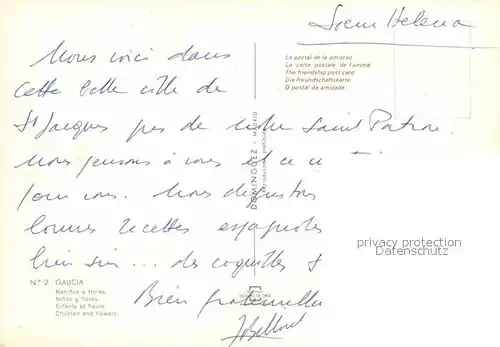 Soeur Helena
Nous voici dans
cette belle ville de
St Jacques pres de notre Saint Patron.
Nous pensons à vous et
pour vous. Nous dégustons
bonnes recettes espagnoles
bien sûr ... des coquilles St
Bien fraternelles
La postal de la amistad
La carte postale de l'amitié
The friendship post card
Die Freundschaftskarte
O postal da amizade
DOMINGUEZ - MADRID
privacy protection
Datenschutz
N.º 2 GALICIA
Meniños e frores.
Niños y flores.
Enfants et fleurs.
Children and flowers.